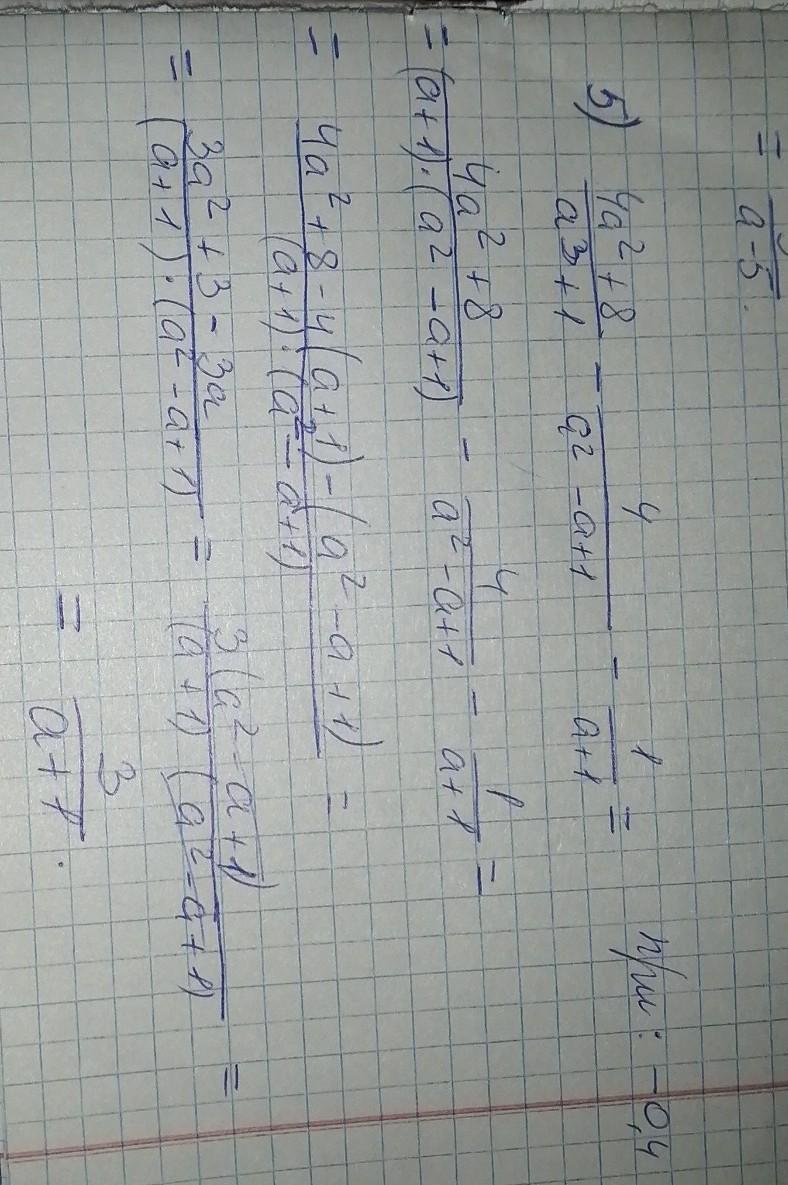 = / (a-5).
5) (4a² + 8)/(a³ + 1) - 4/(a² - a + 1) - 1/(a+1) = при: -0,4
= (4a² + 8)/((a+1)·(a² - a + 1)) - 4/(a² - a + 1) - 1/(a+1) =
= (4a² + 8 - 4(a+1) - (a² - a + 1))/((a+1)·(a² - a + 1)) =
= (3a² + 3 - 3a)/((a+1)·(a² - a + 1)) = 3(a² - a + 1)/((a+1)(a² - a + 1)) =
= 3/(a+1).